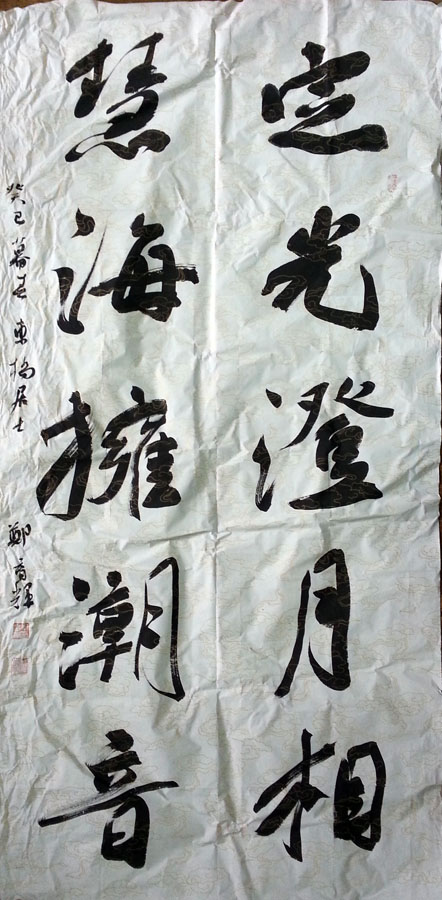 定光澄月相
慧海擁潮音
癸巳暮春 東橋居士 鄭音輝